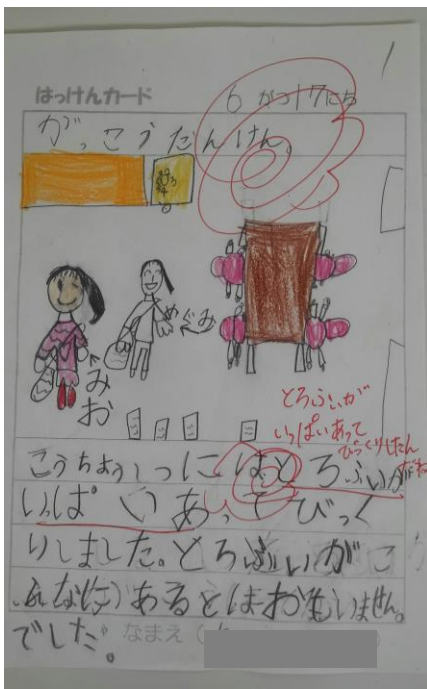 はっけんカード
6がつ17にち
がっこうたんけん。
めぐみ
みお
とろふぃが
いっぱいあって
びっくりしたん
だね
こうちょうしつにはとろふぃが
いっぱいあってびっく
りしました。とろふぃがこ
んなにあるとはおもいません。
でした。なまえ(